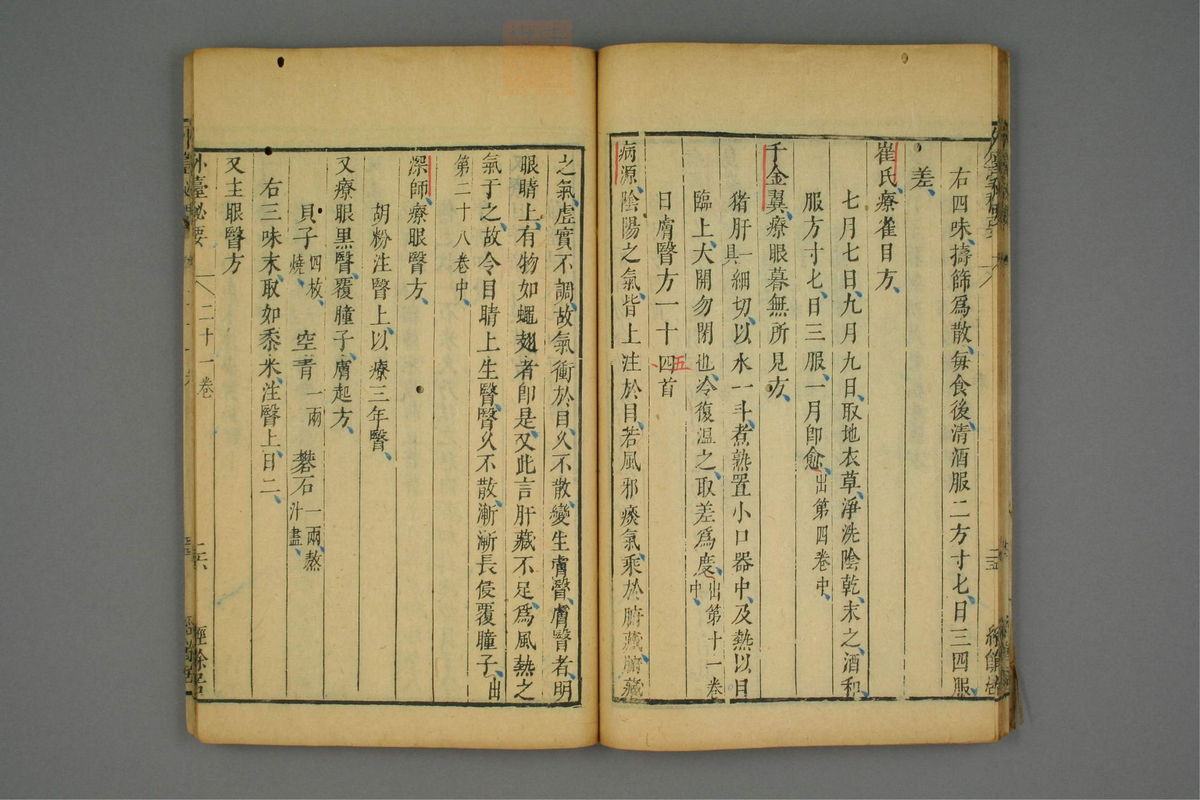 右四味、擣篩爲散、每食後、清酒服二方寸七、日三四服、
差、
崔氏療雀目方、
七月七日、九月九日、取地衣草、淨洗陰乾、末之、酒和、
服方寸七、日三服、一月卽愈、出第四卷中、
千金翼、療眼暮無所見方、
猪肝一具細切、以水一斗、煮熟置小口器中、及熱以目
臨上、大開勿閉也、冷復溫之、取差爲度、出第十一卷中、
目膚瞖方一十四首
五
病源、陰陽之氣、皆上注於目、若風邪痰氣、乘於腑藏、腑藏
之氣、虛實不調、故氣衝於目、久不散、變生膚瞖、膚瞖者、明
眼睛上、有物如蠅翅者卽是、又此言肝藏不足、爲風熱之
氣于之、故令目睛上生瞖、瞖久不散、漸漸長侵覆瞳子、出
第二十八卷中、
深師、療眼瞖方、
胡粉注瞖上、以療三年瞖、
又療眼黑瞖、覆瞳子、膚起方、
貝子四枚、燒、 空青一兩 礬石一兩、熬汁盡、
右三味末、取如黍米、注瞖上、日二、
又主眼瞖方
外臺秘要 二十一卷 二六 經餘居